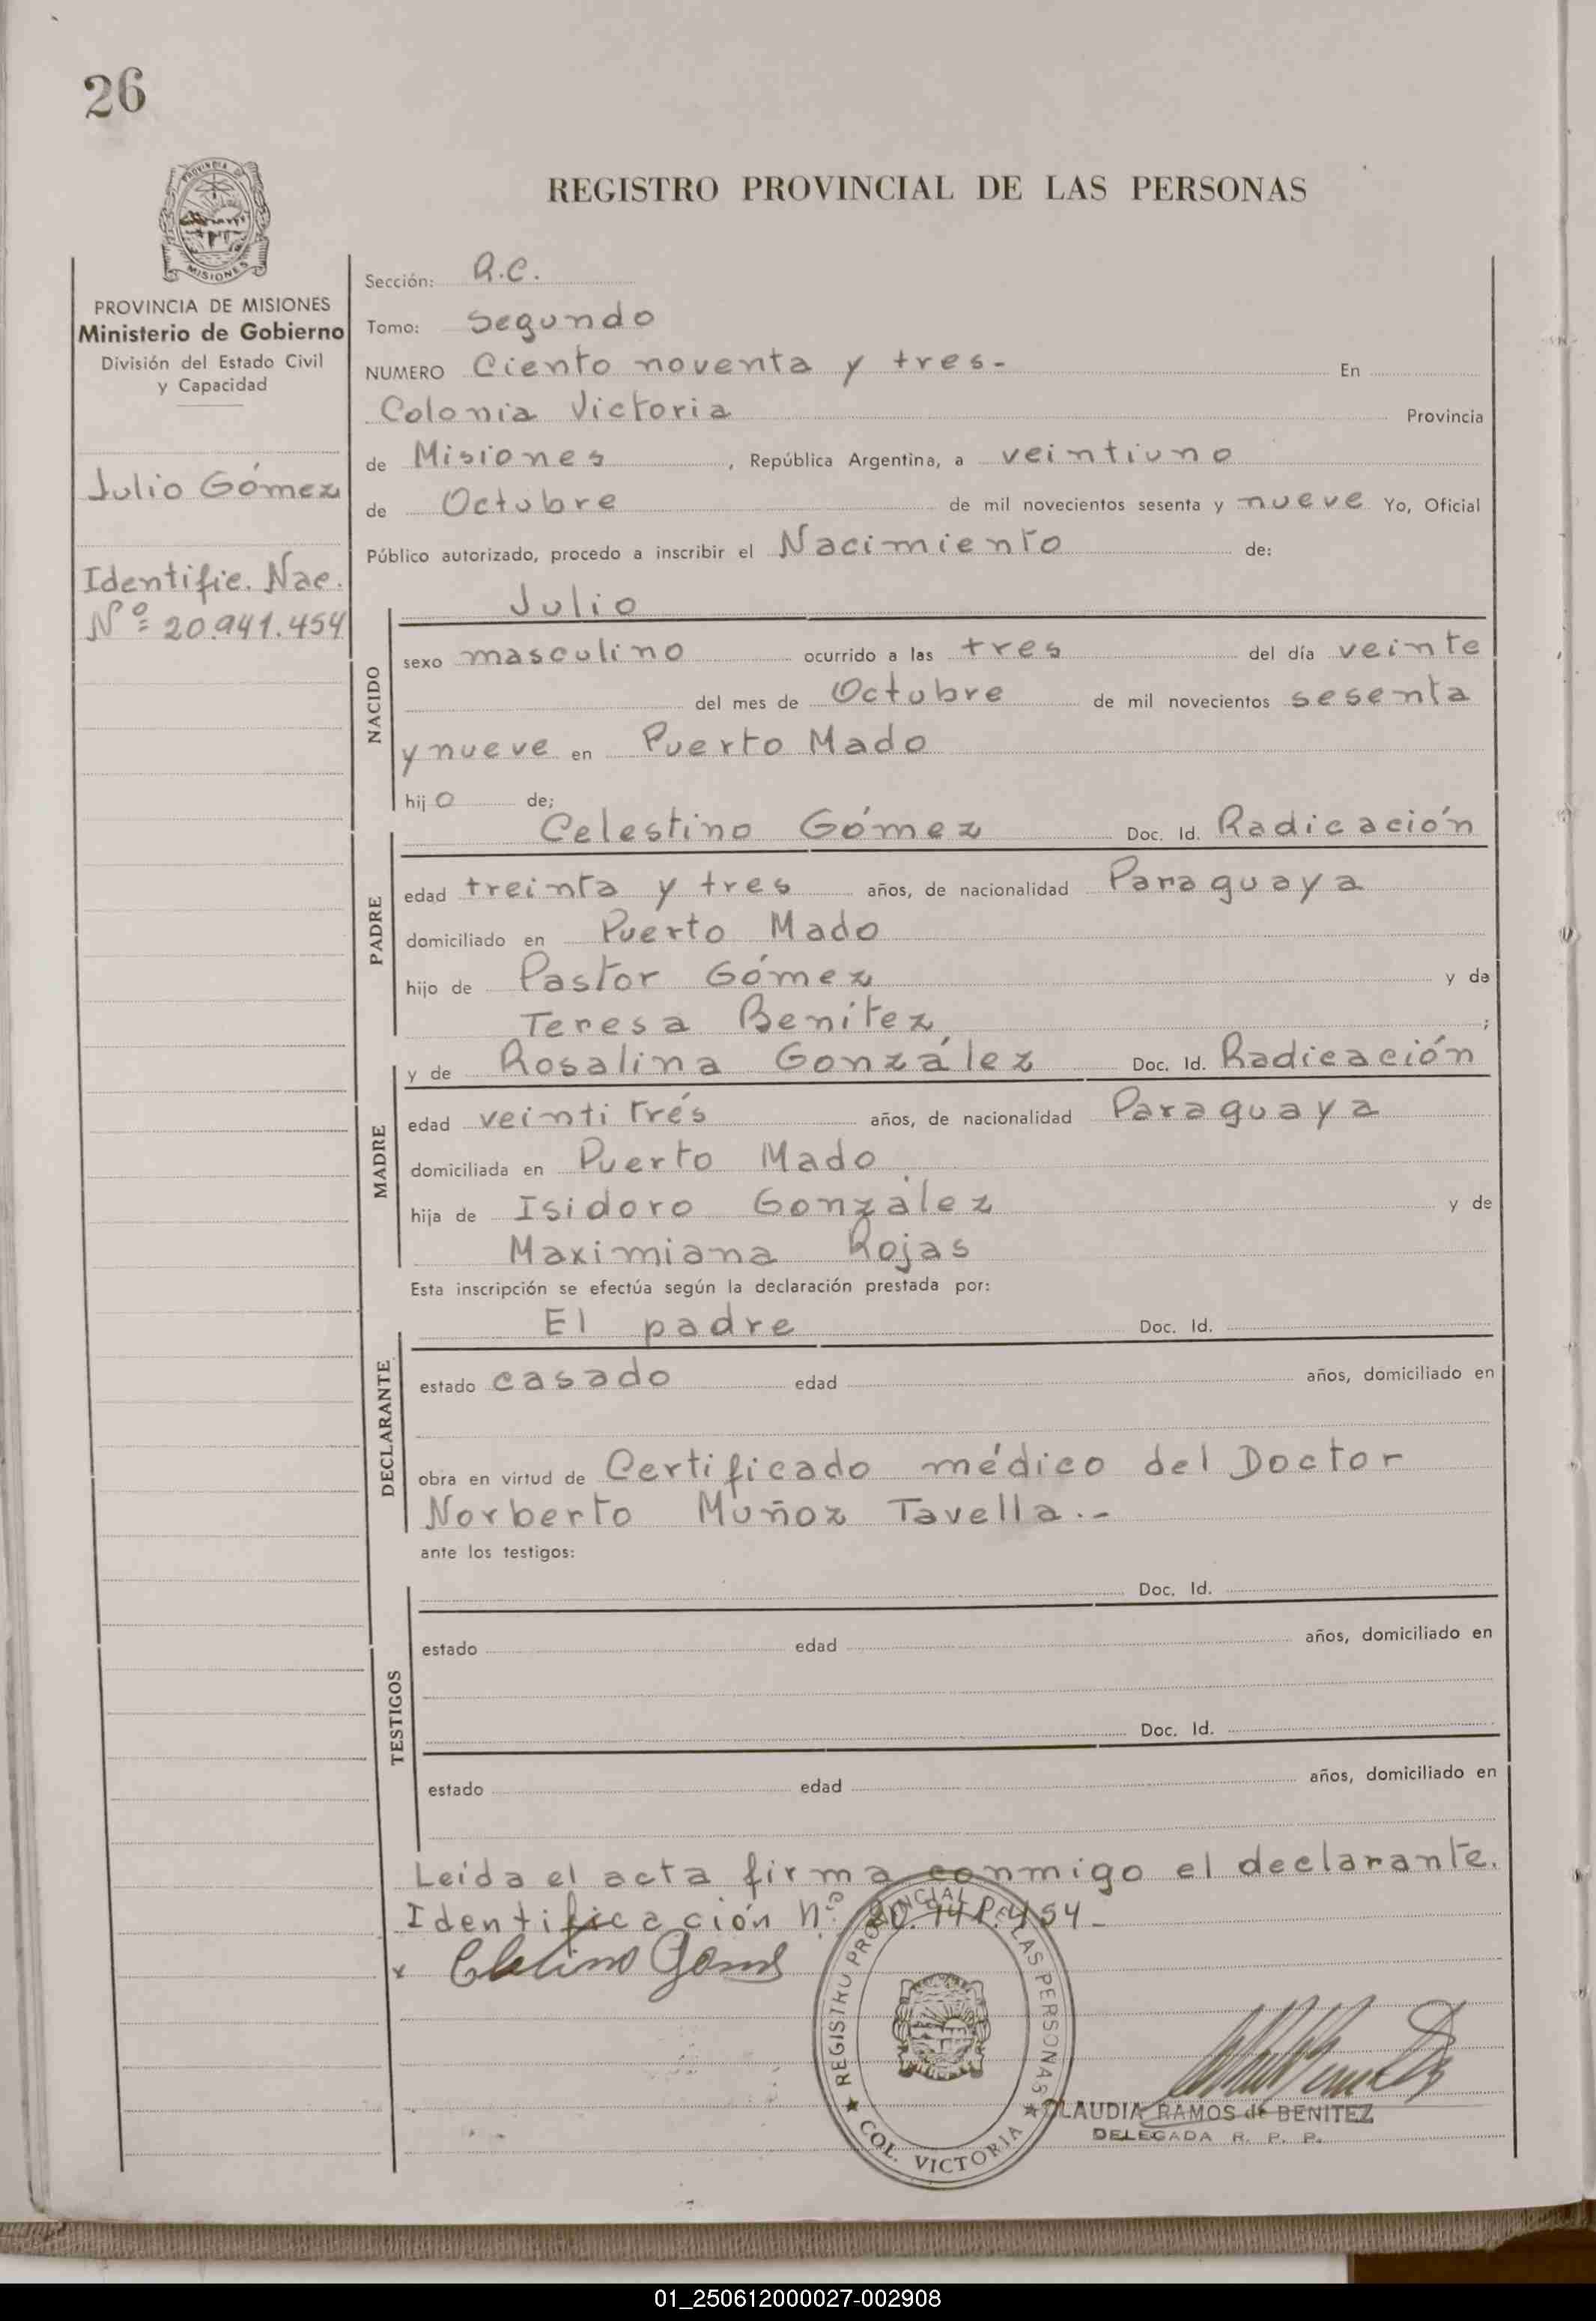 26
PROVINCIA
MISIONES
PROVINCIA DE MISIONES
Ministerio de Gobierno
División del Estado Civil
y Capacidad
Julio Gómez
Identific. Nac.
Nº= 20.941.454
REGISTRO PROVINCIAL DE LAS PERSONAS
Sección: R.C.
Tomo: Segundo
NUMERO Ciento noventa y tres- En
Colonia Victoria Provincia
de Misiones, República Argentina, a veintiuno
de Octubre de mil novecientos sesenta y nueve Yo, Oficial
Público autorizado, procedo a inscribir el Nacimiento de:
Julio
NACIDO
sexo masculino ocurrido a las tres del día veinte
del mes de Octubre de mil novecientos sesenta
y nueve en Puerto Mado
hijo de;
Celestino Gómez Doc. Id. Radicación
PADRE
edad treinta y tres años, de nacionalidad Paraguaya
domiciliado en Puerto Mado
hijo de Pastor Gómez y de
Teresa Benítez ;
y de Rosalina González Doc. Id. Radicación
MADRE
edad veintitrés años, de nacionalidad Paraguaya
domiciliada en Puerto Mado
hija de Isidoro González y de
Maximiana Rojas
Esta inscripción se efectúa según la declaración prestada por:
El padre Doc. Id.
DECLARANTE
estado casado edad años, domiciliado en
obra en virtud de Certificado médico del Doctor
Norberto Muñoz Tavella.-
ante los testigos:
Doc. Id.
TESTIGOS
estado edad años, domiciliado en
Doc. Id.
estado edad años, domiciliado en
Leída el acta firma conmigo el declarante.
Identificación Nº 20.941.454-
x
REGISTRO PROVINCIAL DE LAS PERSONAS
COL. VICTORIA
CLAUDIA RAMOS de BENITEZ
DELEGADA R. P. P.
01_250612000027-002908